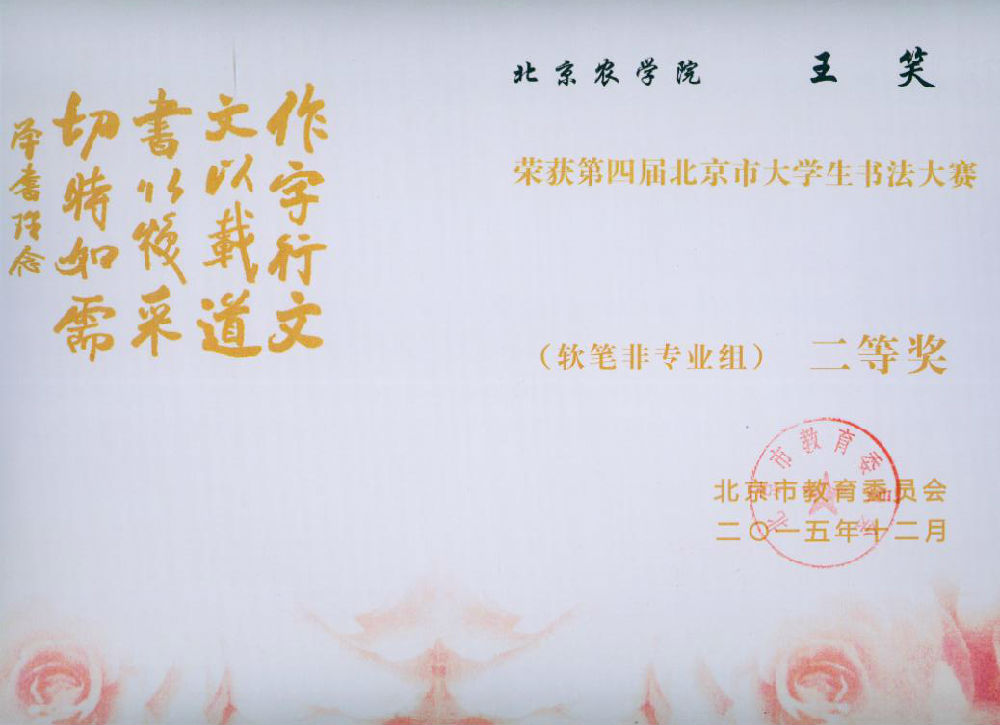 北京农学院 王笑
荣获第四届北京市大学生书法大赛
（软笔非专业组） 二等奖
北京市教育委员会
二〇一五年十二月
北京市教育委员会
作字行文
文以載道
書以焕采
切時如需